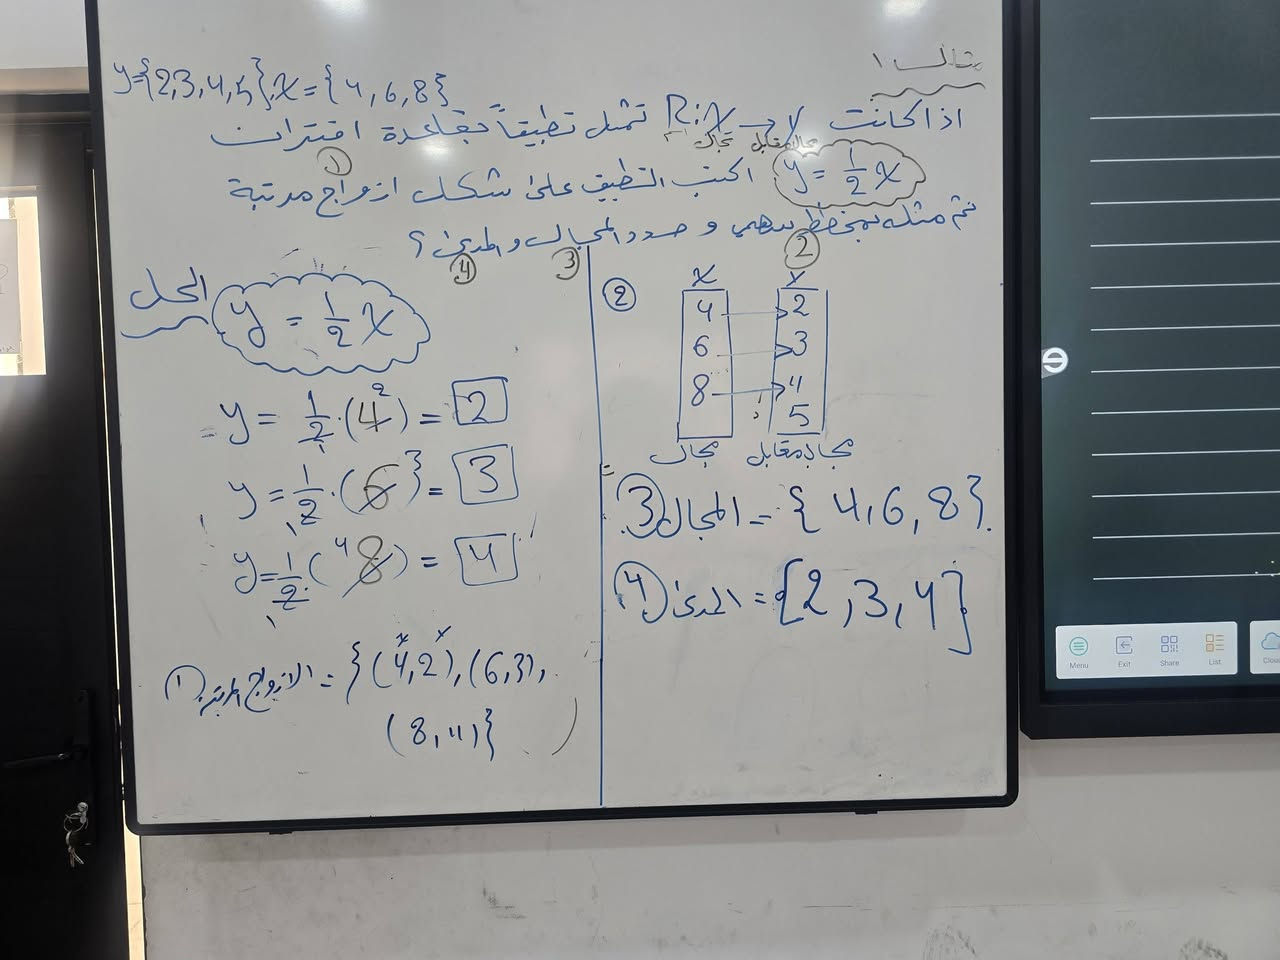 مثال ١
y={2,3,4,5}, x={4,6,8}
اذا كانت R:X→Y تمثل تطبيقاً بقاعدة اقتران
مجال مجال مقابل
y = 1/2 x اكتب التطبيق على شكل ازواج مرتبة ①
ثم مثله بمخطط سهمي ② و حدد المجال ③ والمدى ④ ؟
الحل
y = 1/2 x
y = 1/2 · (4) = 2
y = 1/2 · (6) = 3
y = 1/2 (8) = 4
① الازواج المرتبة = {(4,2), (6,3),
(8,4)}
②
X Y
4 → 2
6 → 3
8 → 4
5
مجال مجال مقابل
③ المجال = { 4, 6, 8 }
④ المدى = {2, 3, 4}
Menu Exit Share List Clou